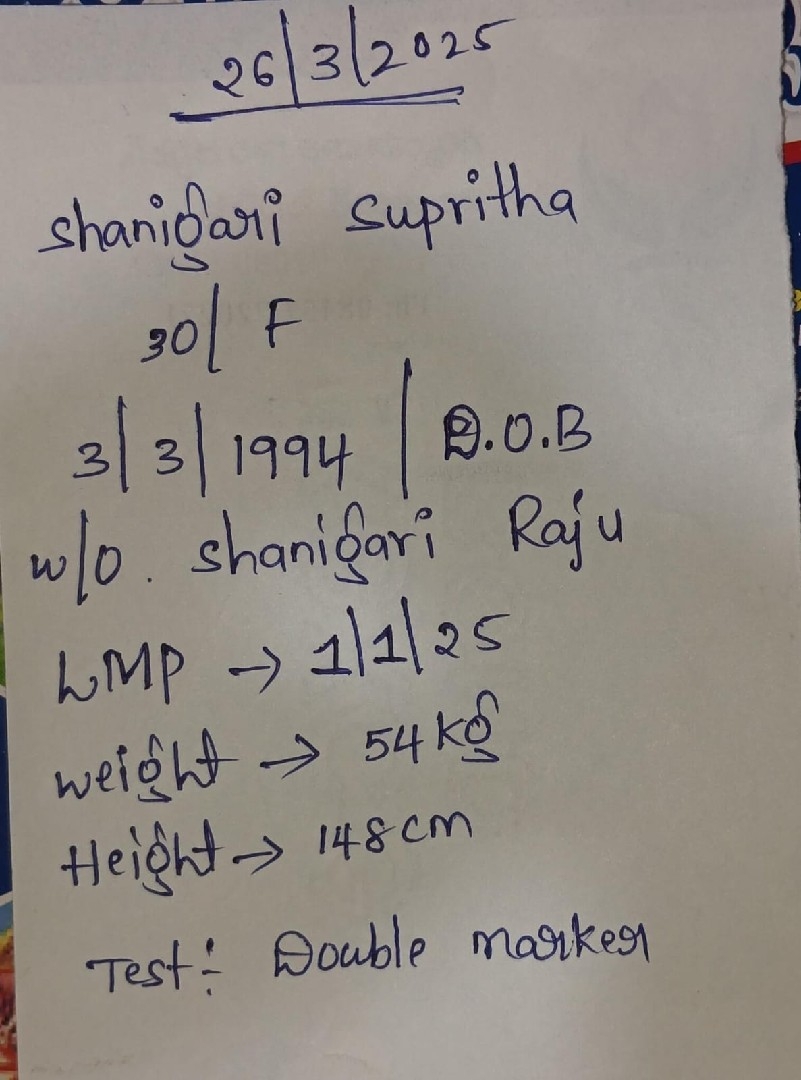 26/3/2025
Shanigari Supritha
30/ F
3/3/1994 / D.O.B
w/o. Shanigari Raju
LMP → 1/1/25
weight → 54 kg
Height → 148 cm
Test:- Double marker